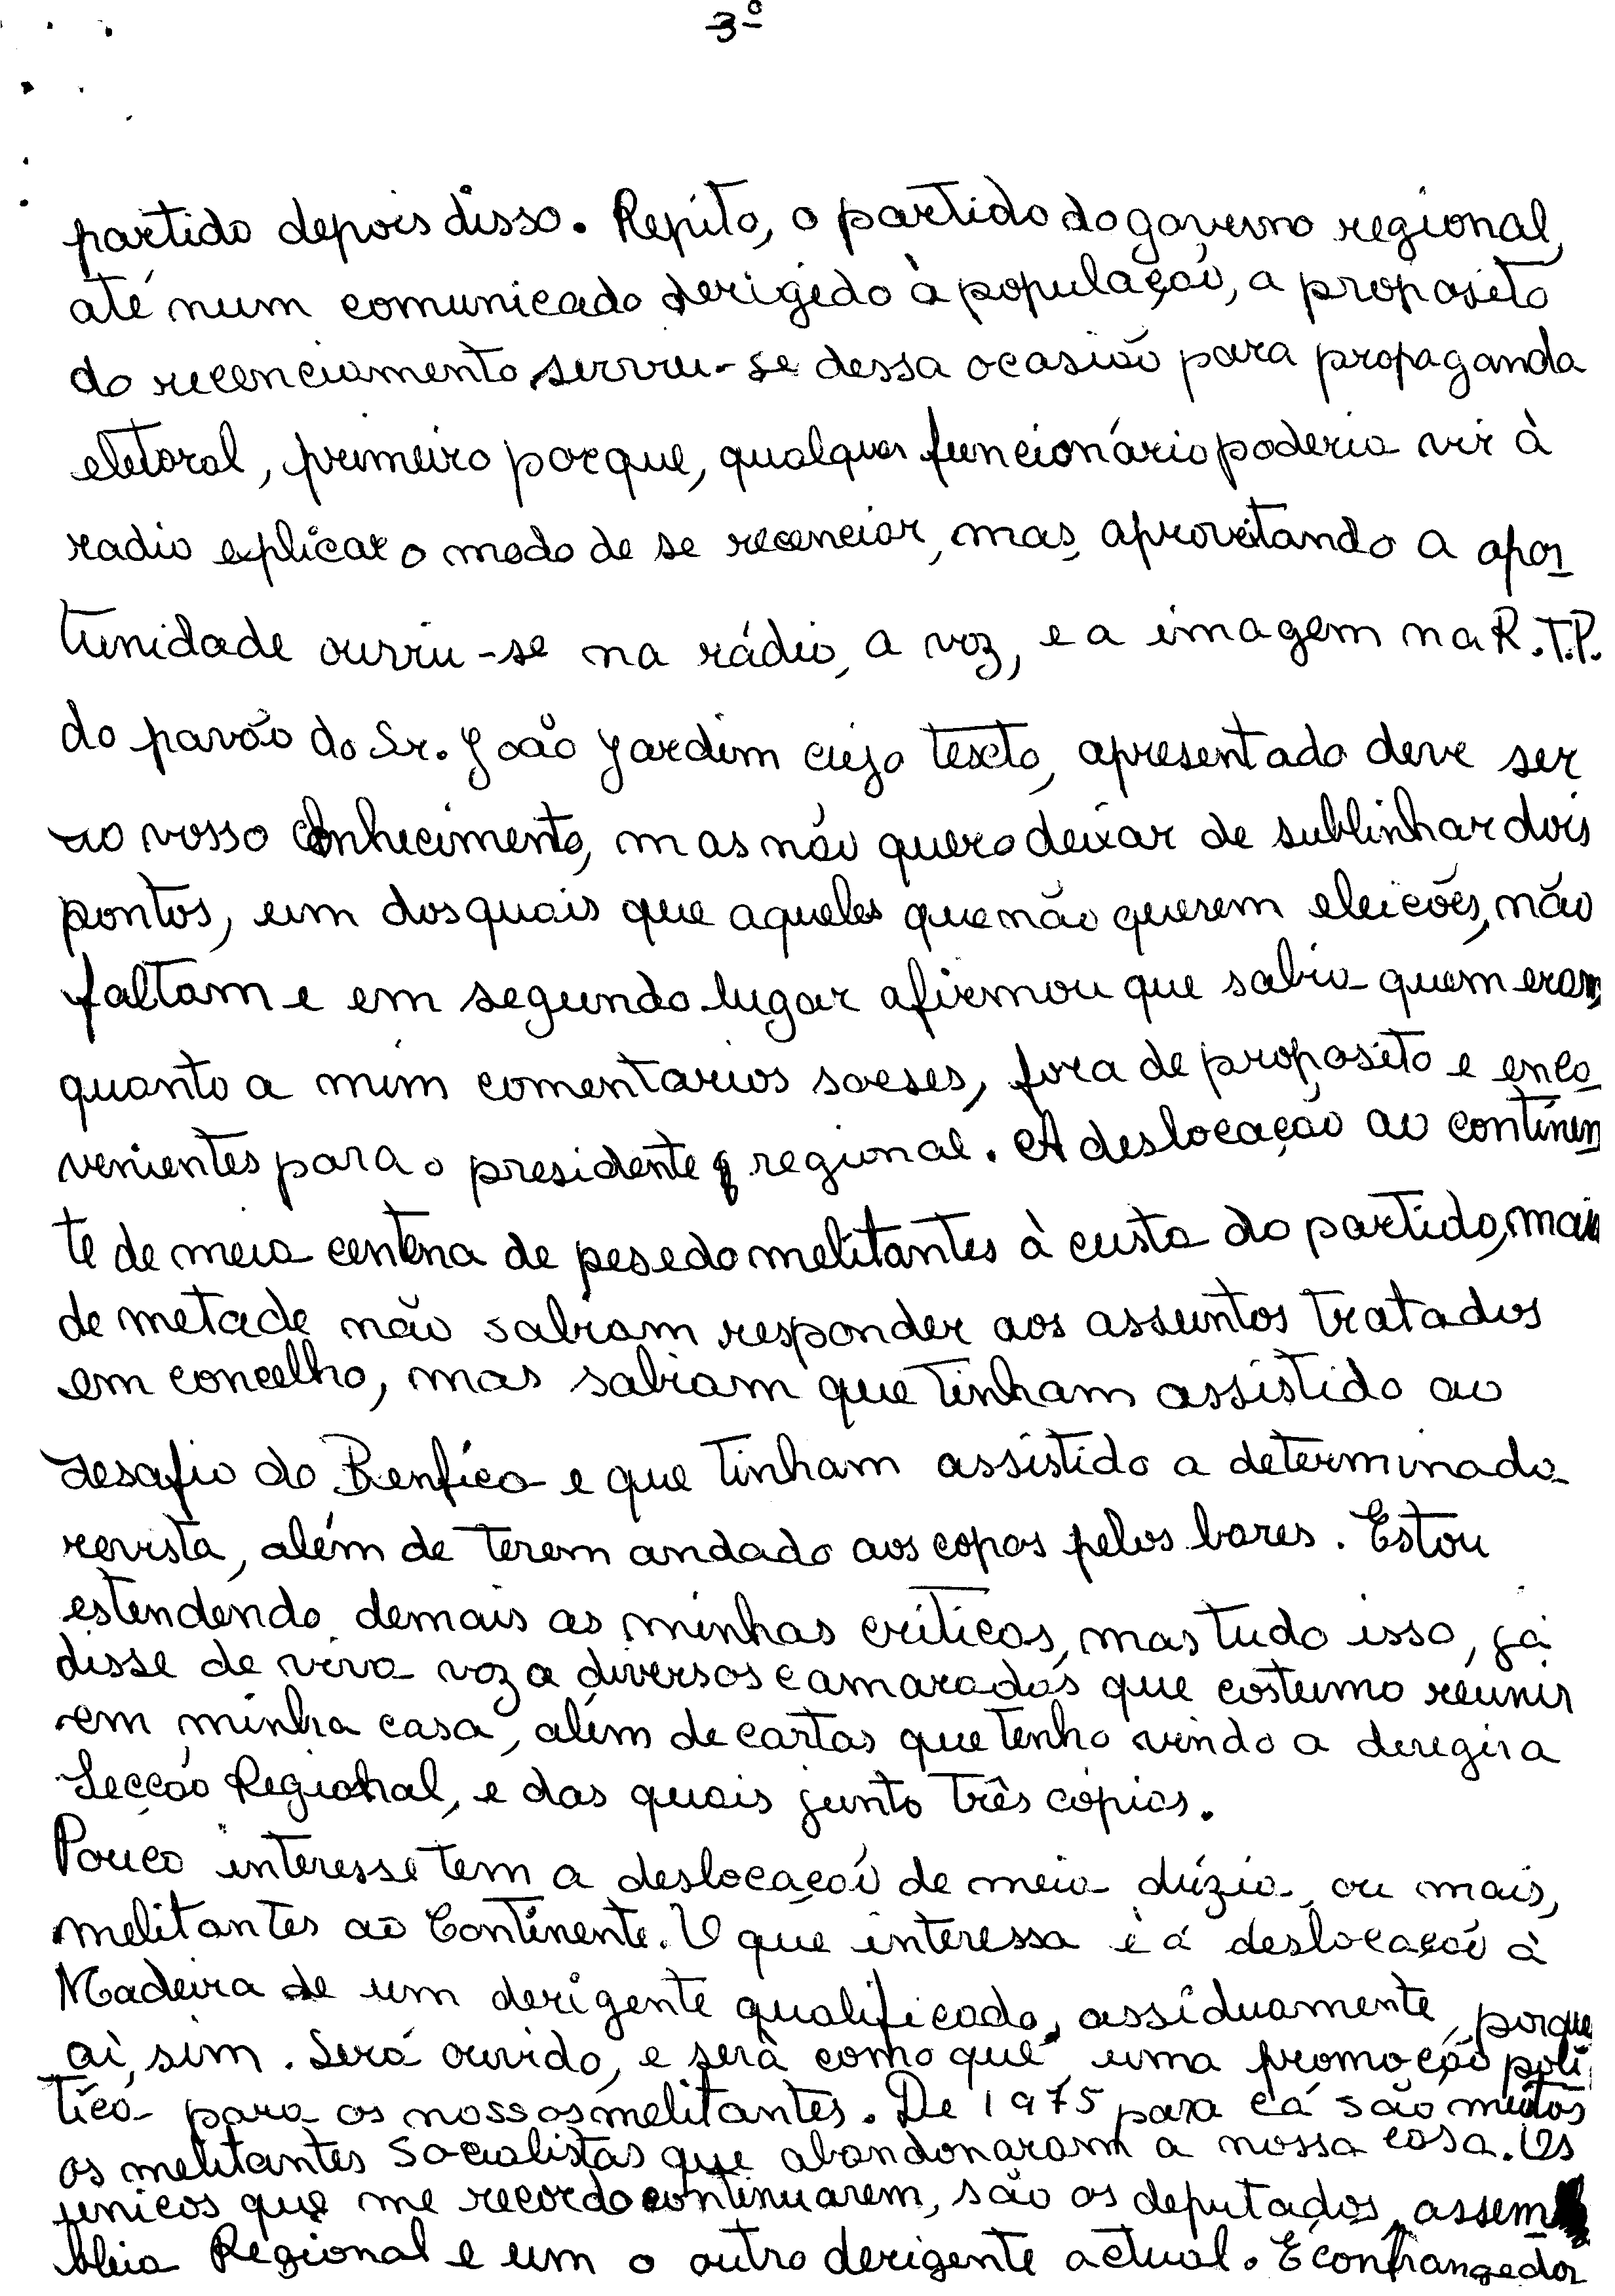 3º
partido depois disso. Repito, o partido do governo regional,
até num comunicado derigido à população, a proposito
do recenciamento, serviu-se dessa ocasião para propaganda
eletoral, primeiro porque, qualquer funcionário poderia vir à
radio explicar o modo de se recenciar, mas, aprovitando a apor
tunidade ouviu-se na rádio, a voz, e a imagem na R.T.P.
do pavão do Sr. João Jardim cujo texto, apresentado deve ser
ao vosso conhecimento, mas não quero deixar de sublinhar dois
pontos, um dos quais que aqueles que não querem eleicões, não
faltam e em segundo lugar afirmou que sabia quem eram,
quanto a mim comentarios soeses, fora de proposito e enco
venientes para o presidente regional. A deslocação ao continen
te de meia centena de pesedo melitantes à custa do partido, mais
de metade não sabiam responder aos assuntos tratados
em concelho, mas sabiam que tinham assistido ao
desafio do Benfica e que tinham assistido a determinada
revista, além de terem andado aos copos pelos bares. Estou
estendendo demais as minhas críticas, mas tudo isso, já
disse de viva voz a diversos camaradas que costumo reunir
em minha casa, além de cartas que tenho vindo a deregir a
Secção Regional, e das quais junto três cópias.
Pouco interesse tem a deslocação de meia dúzia, ou mais,
melitantes ao Continente. O que interessa é a deslocação à
Madeira de um derigente qualificado, assiduamente, porque
aí, sim. Será ouvido, e será como que uma promoção polí
tica para os nossos melitantes. De 1975 para cá são muitos
os melitantes Socialistas que abandonaram a nossa casa. Os
unicos que me recordo continuarem, são os deputados, assem
bleia Regional e um o outro derigente actual. É confrangedor